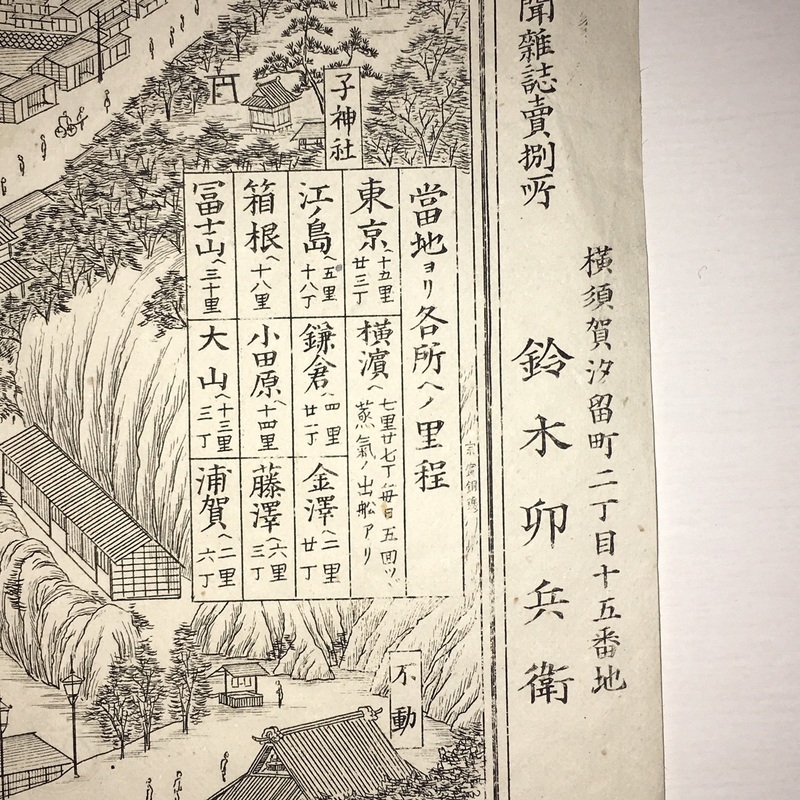 聞雑誌賣捌所
横須賀汐留町二丁目十五番地
鈴木卯兵衛
子神社
當地ヨリ各所ヘノ里程
東京ヘ十五里廿三丁
横濱ヘ七里廿七丁毎日五回ヅ蒸氣ノ出舩アリ
江ノ島ヘ五里十八丁
鎌倉ヘ四里廿一丁
金澤ヘ二里廿丁
箱根ヘ十八里
小田原ヘ十四里
藤澤ヘ六里三丁
冨士山ヘ三十里
大山ヘ十三里三丁
浦賀ヘ二里六丁
不動